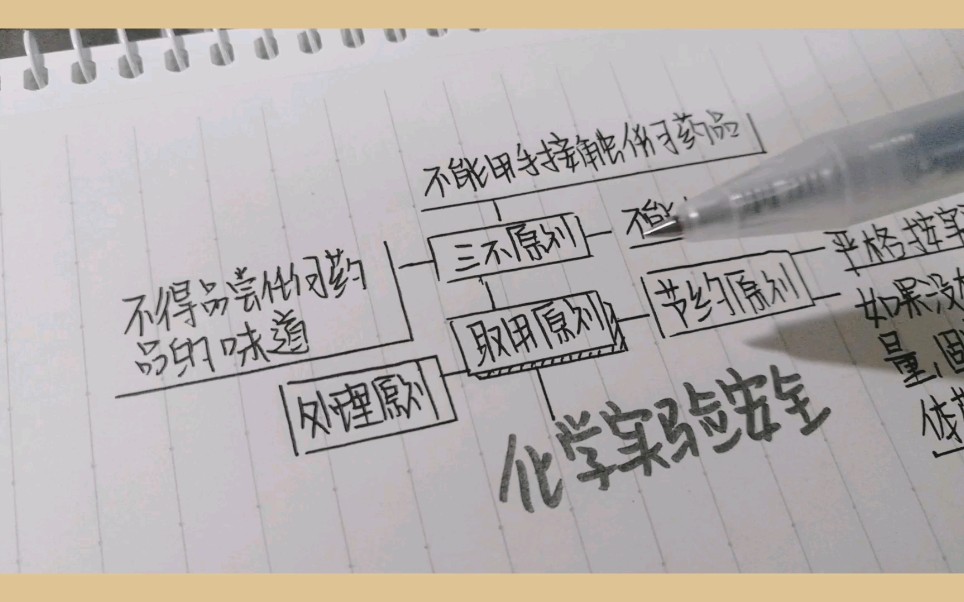 不能用手接触任何药品
不能
三不原则
严格按实
不得品尝任何药
品的味道
节约原则
如果没有
量,固
体
取用原则
处理原则
化学实验安全